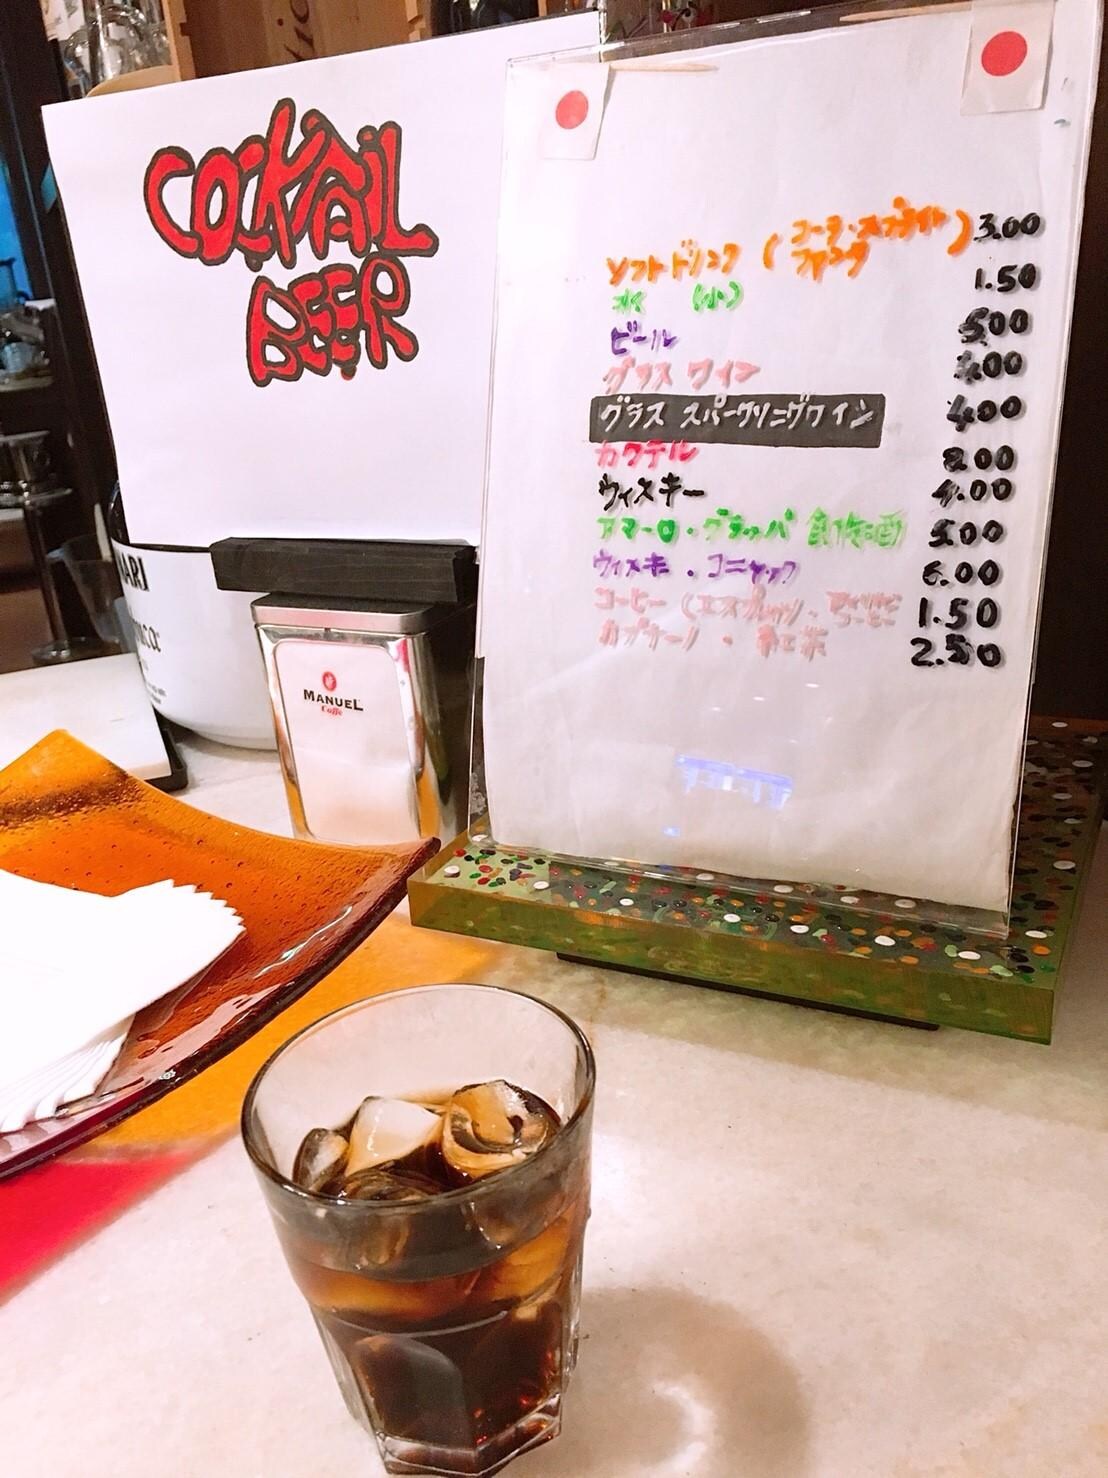 COCKTAIL
BEER
ソフトドリンク (コーラ・スプライト ファンタ) 3.00
水 (小) 1.50
ビール 5.00
グラス ワイン
グラス スパークリングワイン 4.00
カクテル 8.00
ウィスキー 4.00
アマーロ・グラッパ 食後酒 5.00
ウィスキ・コニャック 6.00
コーヒー (エスプレッソ)・ 1.50
カプチーノ・紅茶 2.50
MANUEL
Caffe